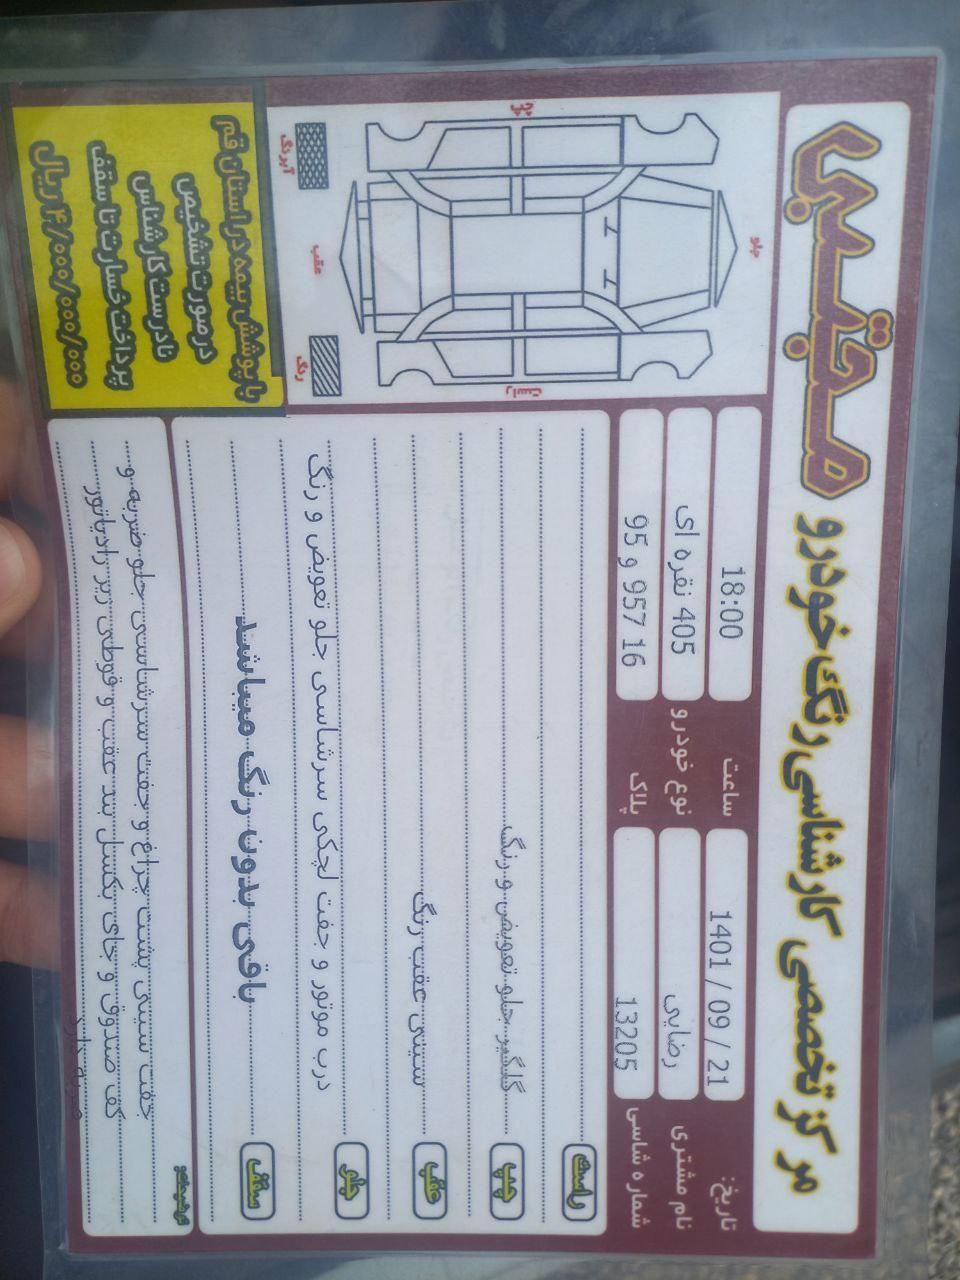 مرکز تخصصی کارشناسی رنگ خودرو مجتبی
تاریخ: 1401 / 09 / 21
ساعت 18:00
نام مشتری رضایی
نوع خودرو 405 نقره ای
شماره شاسی 13205
پلاک 16 957 و 95
راست
چپ گلگیر جلو تعویض و رنگ
عقب سینی عقب رنگ
جلو درب موتور و جفت لچکی سرشاسی جلو تعویض و رنگ
سقف باقی بدون رنگ میباشد
توضیحات:
جفت سینی پشت چراغ و جفت سرشاسی جلو ضربه و
کف صندوق و جای بکسل بند عقب و قوطی زیر رادیاتور
جلو
چپ
راست
عقب
آبرنگ
رنگ
با پوشش بیمه در استان قم
در صورت تشخیص
نادرست کارشناس
پرداخت خسارت تا سقف
۴/۰۰۰/۰۰۰/۰۰۰ ریال